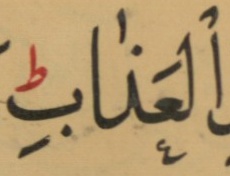 اَلْعَذَابِ ط